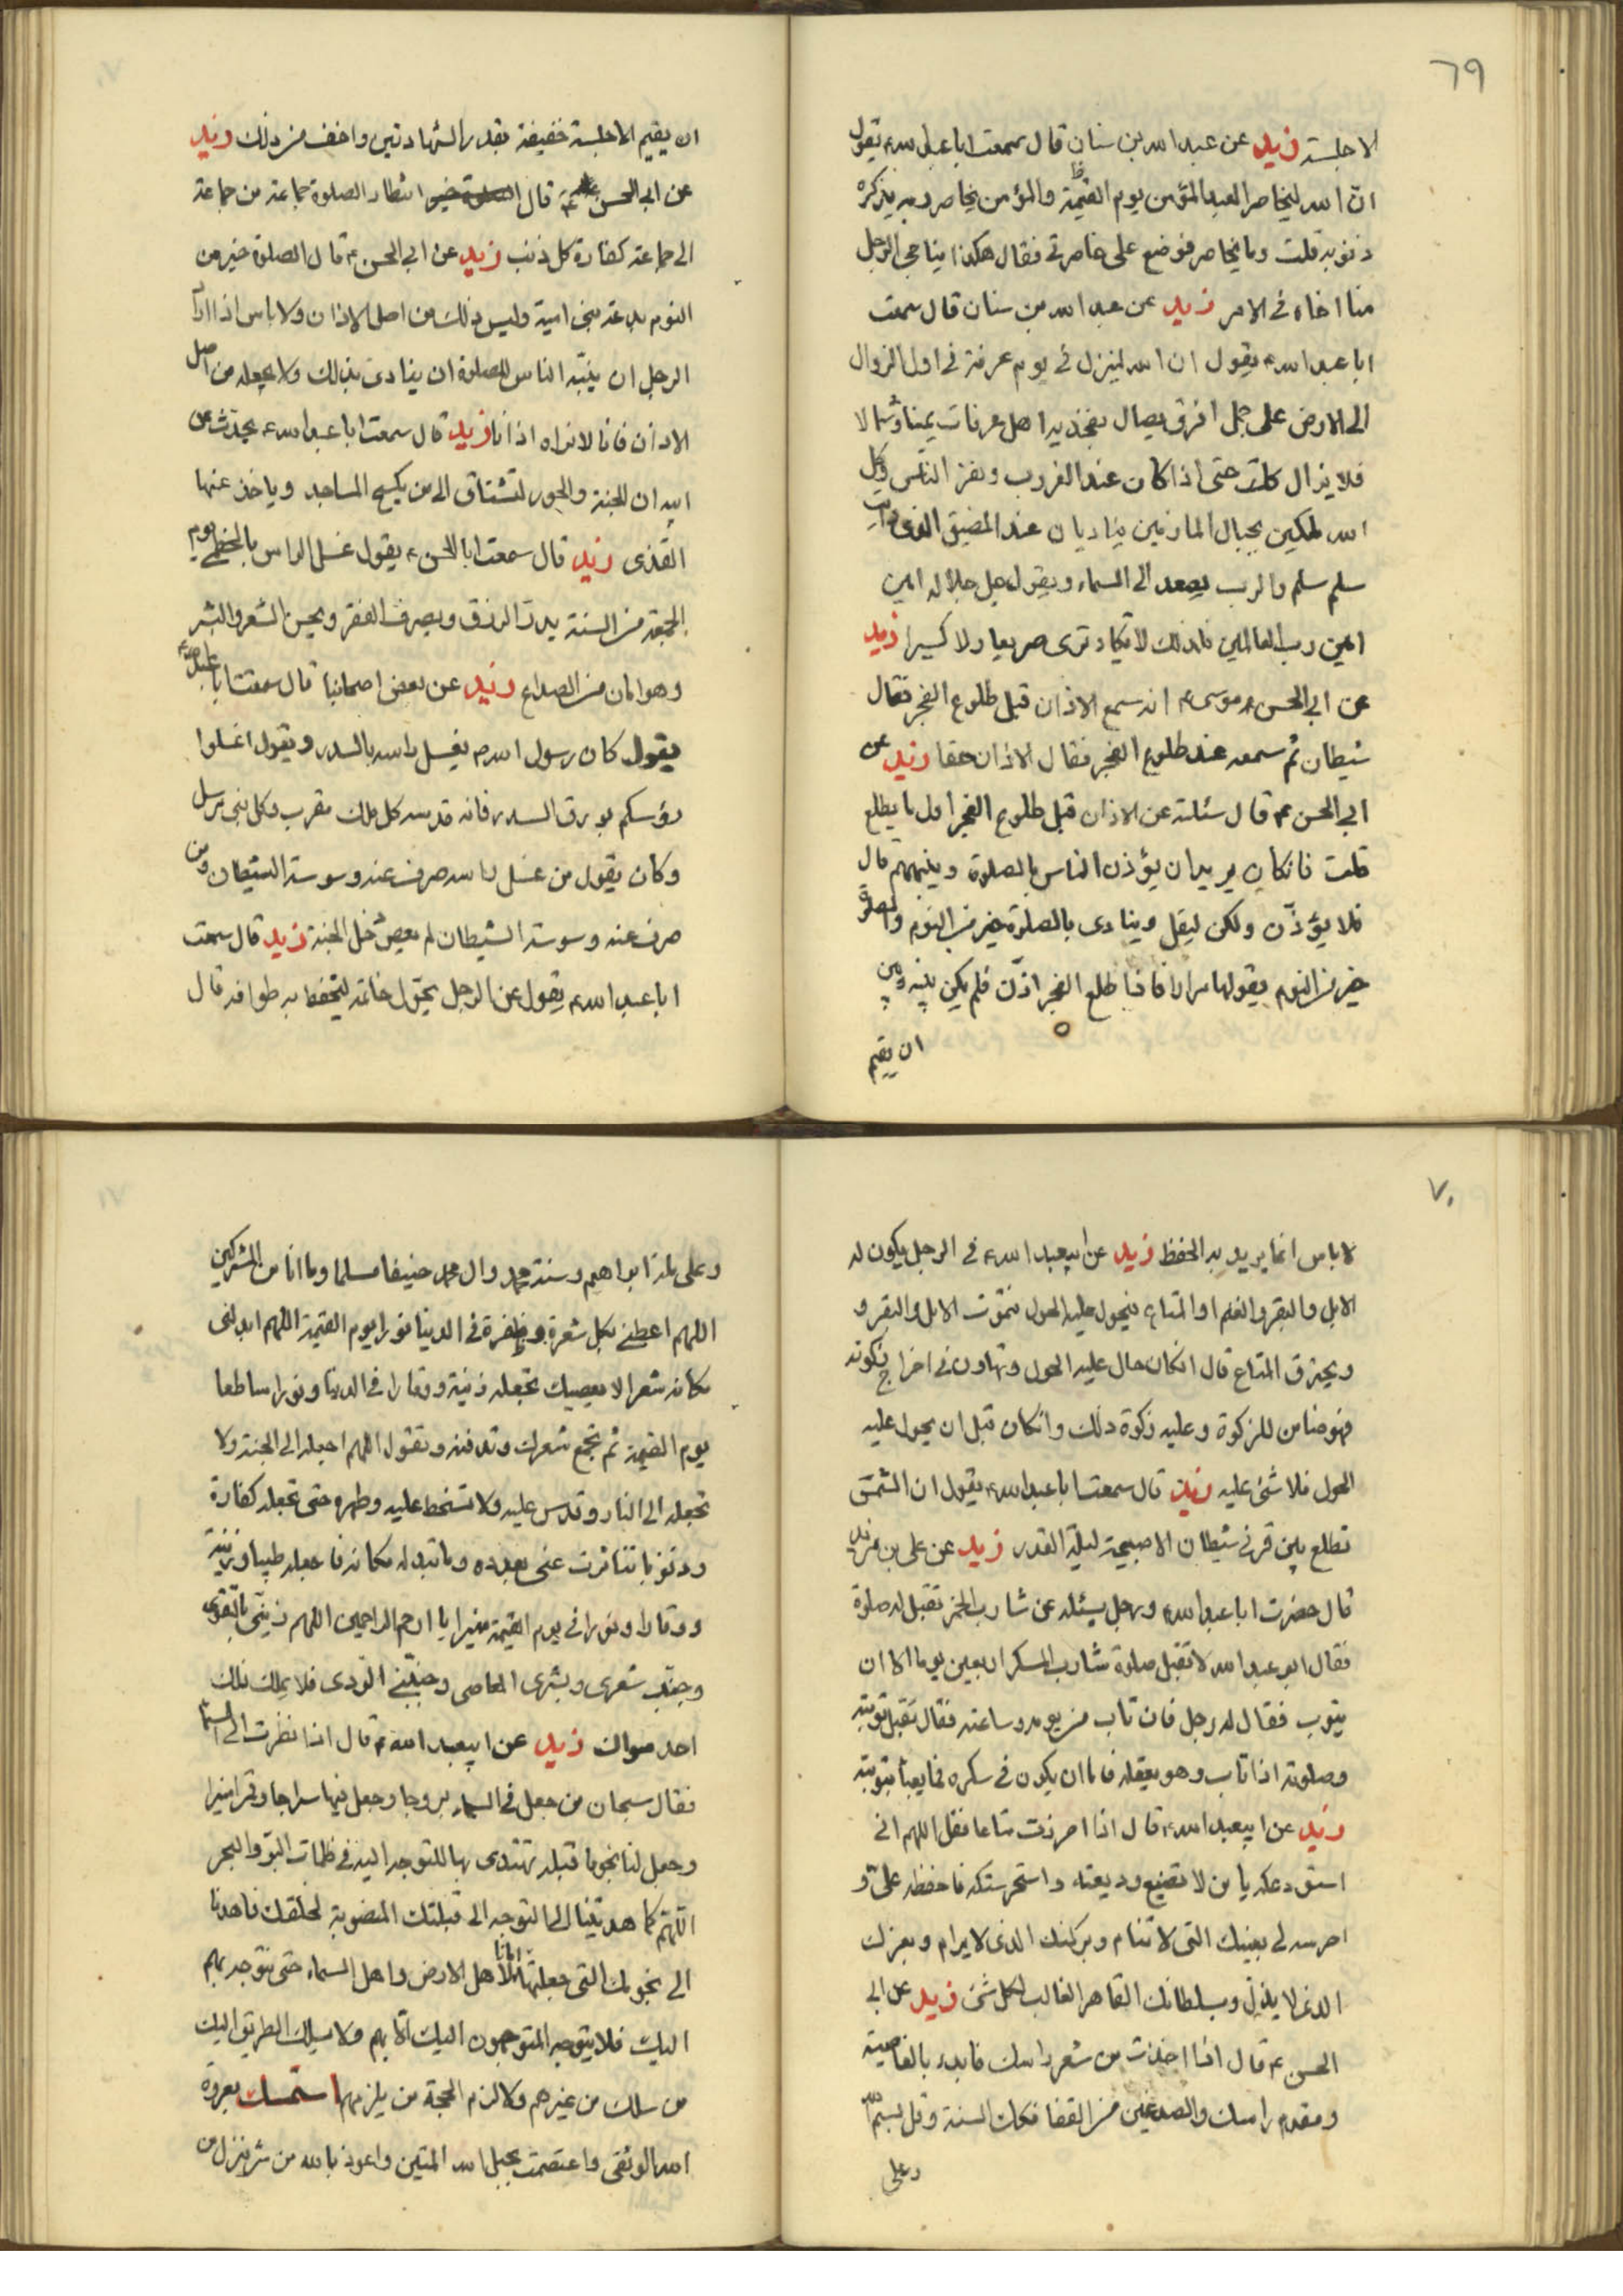 ٦٩
الا جلسة زيد عن عبد الله بن سنان قال سمعت ابا عبد الله ع يقول
ان الله ليخاصر العبد المؤمن يوم القيمة والمؤمن يخاصر ربه يذكره
ذنوبه قلت وما يخاصر فوضع على خاصرتي فقال هكذا يناجي الرجل
منا اخاه في الامر زيد عن عبد الله بن سنان قال سمعت
ابا عبد الله ع يقول ان الله لينزل في يوم عرفة في اول الزوال
الى الارض على جمل افرق يصال بفخذيه اهل عرفات يمينا وشمالا
فلا يزال كذلك حتى اذا كان عند الغروب ونفر الناس وكل
الله ملكين بجبال المازمين يناديان عند المضيق الذي رايت
سلم سلم والرب يصعد الى السماء ويقول جل جلاله امين
امين رب العالمين فلذلك لا تكاد ترى صريعا ولا كسيرا زيد
عن ابي الحسن موسى ع انه سمع الاذان قبل طلوع الفجر فقال
شيطان ثم سمعه عند طلوع الفجر فقال الاذان حقا زيد عن
ابي الحسن ع قال سئلته عن الاذان قبل طلوع الفجر اول ما يطلع
قلت فانكان يريد ان يؤذن الناس بالصلوة وينبههم قال
فلا يؤذن ولكن ليقل وينادى بالصلوة خير من النوم والصلوة
خير من النوم يقولها مرارا فاذا طلع الفجر اذن فلم يكن بينه وبين
ان يقيم
ان يقيم الا جلسة خفيفة بقدر الشهادتين واخف من ذلك زيد
عن ابي الحسن ع قال الصلوة خير انتظار الصلوة جماعة من جماعة
الى جماعة كفارة كل ذنب زيد عن ابي الحسن ع قال الصلوة خير من
النوم بدعة بني امية وليس ذلك من اصل الاذان ولا باس اذا اراد
الرجل ان ينبه الناس للصلوة ان ينادى بذلك ولا يجعله من اصل
الاذان فانا لا نراه اذانا زيد قال سمعت ابا عبد الله ع يحدث عن
ابيه ان الجنة والحور لتشتاق الى من يكسح المساجد وياخذ عنها
القذى زيد قال سمعت ابا الحسن ع يقول غسل الراس بالخطمي يوم
الجمعة من السنة يدر الرزق ويصرف الفقر ويحسن الشعر والبشر
وهو امان من الصداع زيد عن بعض اصحابنا قال سمعت ابا عبد الله ع
يقول كان رسول الله ص يغسل راسه بالسدر ويقول اغسلوا
رؤسكم بورق السدر فانه قدسه كل ملك مقرب وكل نبي مرسل
وكان يقول من غسل راسه صرف عنه وسوسة الشيطان ومن
صرف عنه وسوسة الشيطان لم يعص دخل الجنة زيد قال سمعت
ابا عبد الله ع يقول عن الرجل يحول خاتمه ليحفظ به طوافه قال
٧٠
لا باس انما يريد به الحفظ زيد عن ابيعبد الله ع في الرجل يكون له
الابل والبقر والغنم او المتاع فيحول عليه الحول فتموت الابل والبقر و
ويحترق المتاع قال انكان حال عليه الحول وتهاون في اخراج زكوته
فهو ضامن للزكوة وعليه زكوة ذلك وانكان قبل ان يحول عليه
الحول فلا شئ عليه زيد قال سمعت ابا عبد الله ع يقول ان الشمس
تطلع بين قرني شيطان الا صبيحة ليلة القدر زيد عن علي بن مزيد
قال حضرت ابا عبد الله ع ورجل يسئله عن شارب الخمر تقبل له صلوة
فقال ابو عبد الله لا تقبل صلوة شارب المسكر اربعين يوما الا ان
يتوب فقال له رجل فان تاب من يومه وساعته فقال تقبل توبته
وصلوته اذا تاب وهو يعقله فاما ان يكون في سكره فما يعبأ بتوبته
زيد عن ابيعبد الله ع قال اذا احرزت متاعا فقل اللهم اني
استودعكه يا من لا تضيع وديعته واستحرستكه فاحفظه علي و
احرسه لي بعينك التي لا تنام وبركنك الذي لا يرام وبعزك
الذي لا يذل وبسلطانك القاهر الغالب لكل شئ زيد عن ابي
الحسن ع قال اذا اخذت من شعر راسك فابدء بالناصية
ومقدم راسك والصدغين من القفا فكك السنة وقل بسم الله
وعلى
وعلى ملة ابراهيم وسنة محمد وال محمد حنيفا مسلما وما انا من المشركين
اللهم اعطني بكل شعرة وظفرة في الدنيا نورا يوم القيمة اللهم ابدلني
مكانه شعرا لا يعصيك تجعله زينة ووقارا في الدنيا ونورا ساطعا
يوم القيمة ثم تجمع شعرك وتدفنه وتقول اللهم اجعله الى الجنة ولا
تجعله الى النار وقدس عليه ولا تسخط عليه وطهره حتى تجعله كفارة
وذنوبا تناثرت عني بعدده وما تبدله مكانه فاجعله طيبا وزينة
ووقارا ونورا في يوم القيمة منيرا يا ارحم الراحمين اللهم زيني بالتقوى
وجنب شعري وبشري المعاصي وجنبني الردى فلا يملك ذلك
احد سواك زيد عن ابيعبد الله ع قال اذا نظرت الى السماء
فقال سبحان من جعل في السماء بروجا وجعل فيها سراجا وقمرا منيرا
وجعل لنا نجوما قبلة تهتدى بها للتوجه اليه في ظلمات البر والبحر
اللهم كما هديتنا الى التوجه الى قبلتك المنصوبة لخلقك فاهدنا
الى نجومك التي جعلتها امانا لاهل الارض واهل السماء حتى نتوجه بهم
اليك فلا يتوجه المتوجهون اليك الا بهم ولا يسلك الطريق اليك
من سلك من غيرهم ولا لزم المحجة من لم يلزمهم استمسكت بعروة
الله الوثقى واعتصمت بحبل الله المتين واعوذ بالله من شر ما ينزل من